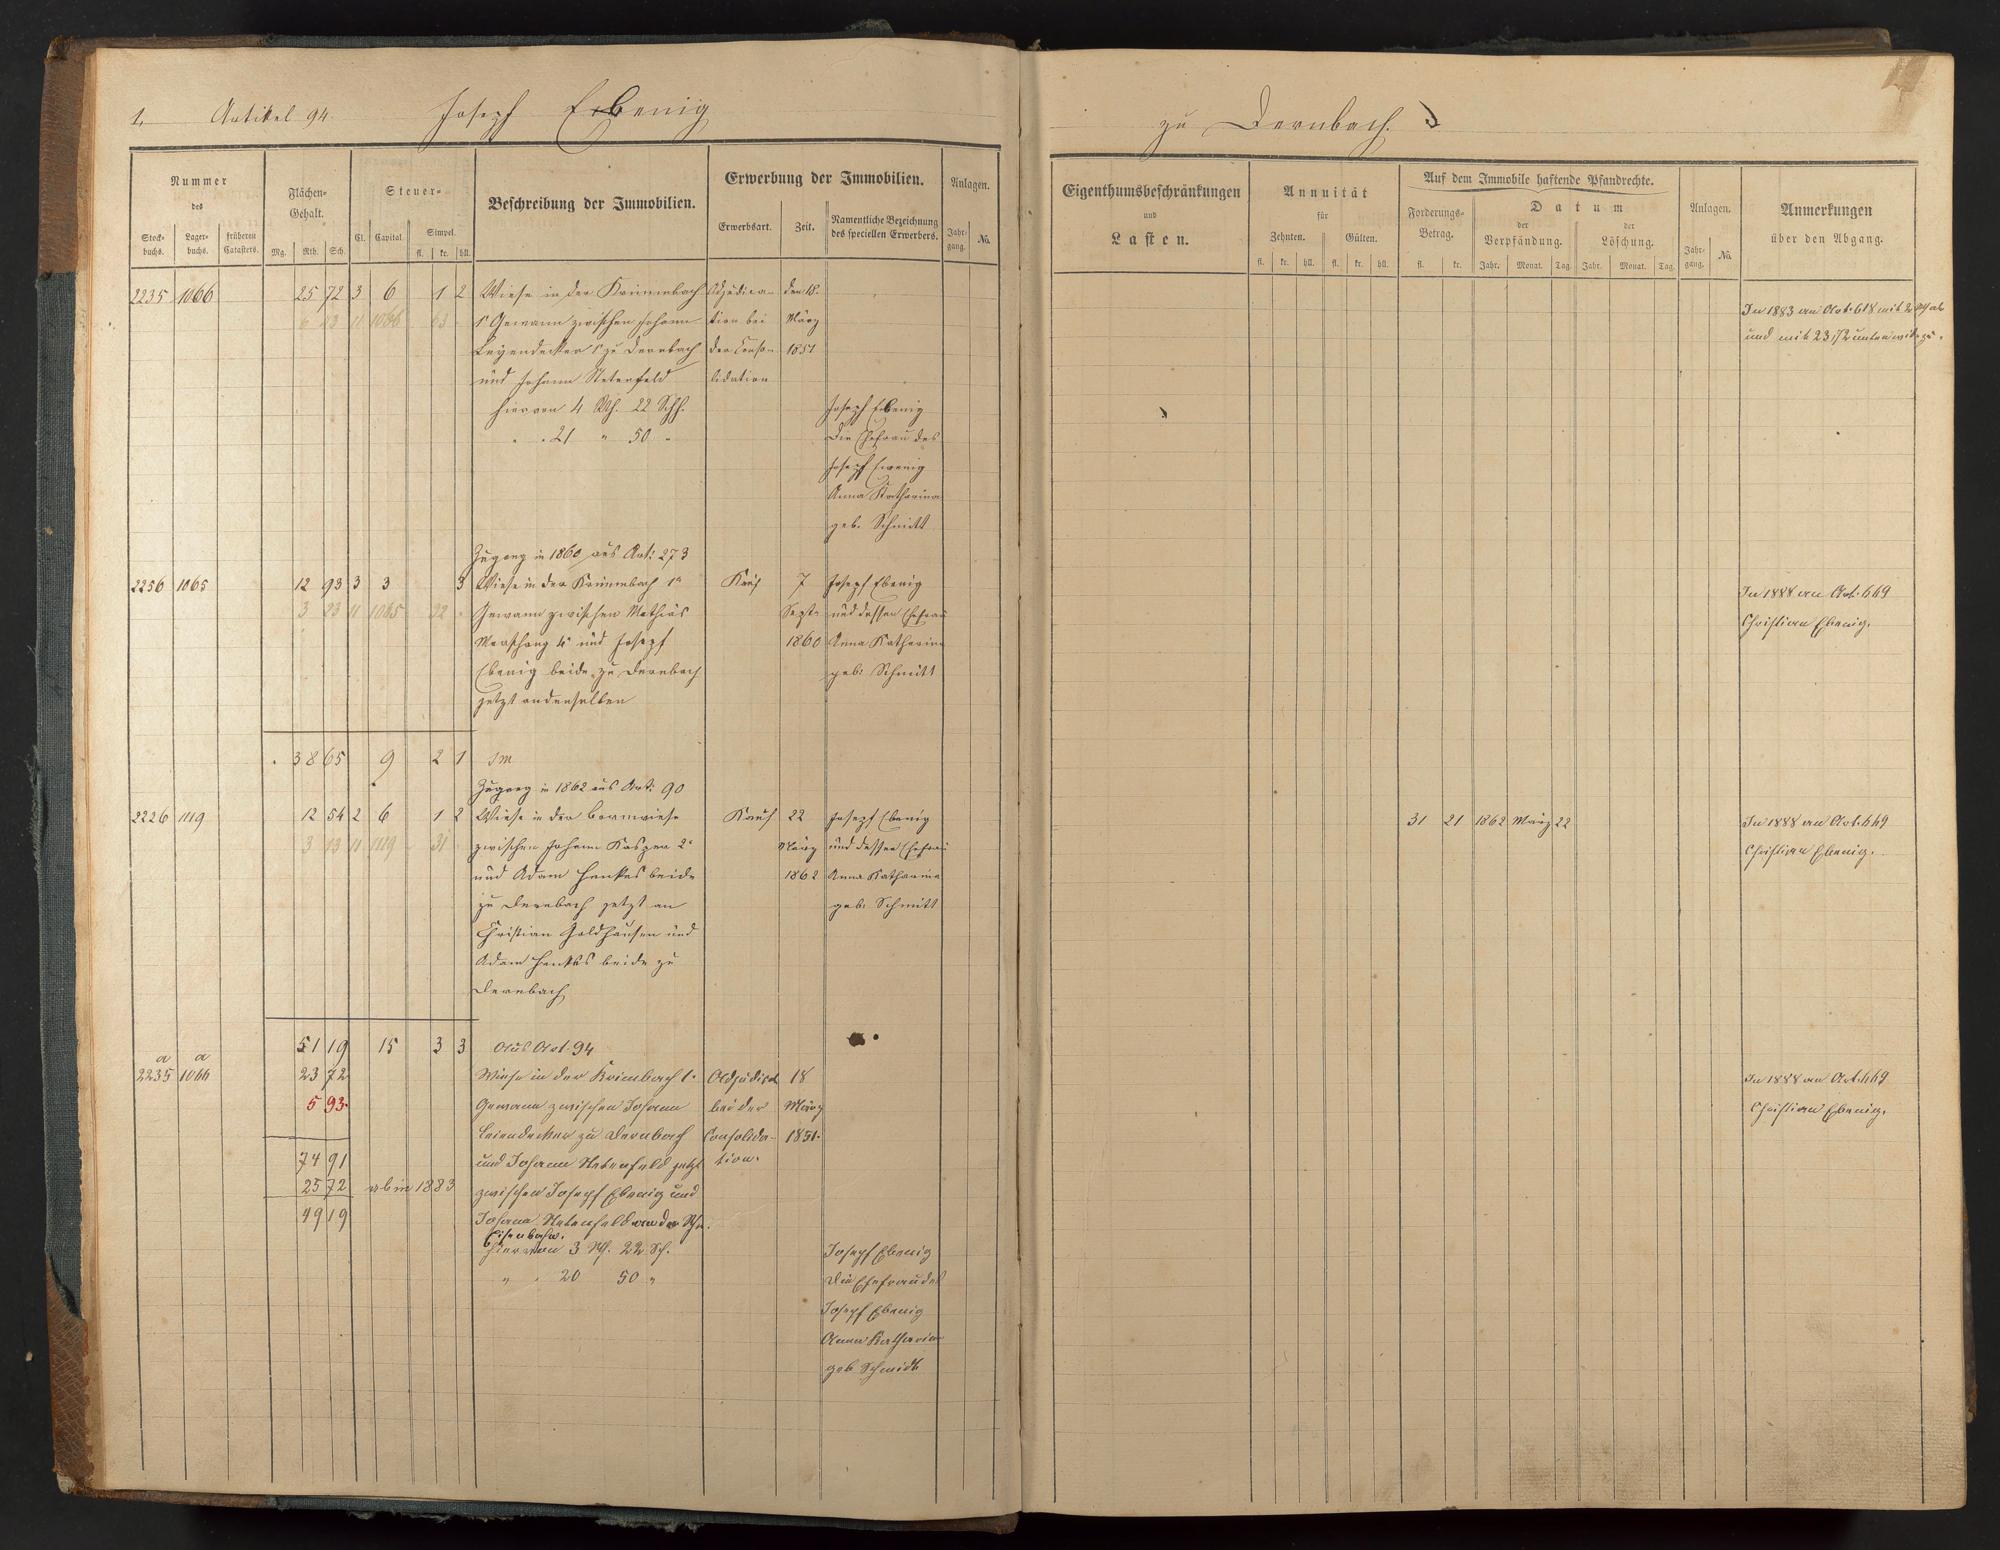 1. Artikel 94. Joseph Ebenig
zu Dernbach.
Nummer
des
Stock-
buchs.
Lager-
buchs.
früheren
Catasters.
Flächen-
Gehalt.
Mg. Rth. Sch.
Steuer-
Cl. Capital. Simpel.
fl. kr. hll.
Beschreibung der Immobilien.
Erwerbung der Immobilien.
Erwerbsart. Zeit. Namentliche Bezeichnung
des speciellen Erwerbers.
Anlagen.
Jahr-
gang. No.
Eigenthumsbeschränkungen
und
Lasten.
Annuität
für
Zehnten. Gülten.
fl. kr. hll. fl. kr. hll.
Auf dem Immobile haftende Pfandrechte.
Forderungs-
Betrag.
fl. kr.
Datum
der
Verpfändung.
der
Löschung.
Jahr. Monat. Tag. Jahr. Monat. Tag.
Anlagen.
Jahr-
gang. No.
Anmerkungen
über den Abgang.
2235 1066 25 72 3 6 1 2 Wiese in der Krümmbach Adjudica- den 18.
6 43 11 1066 63 1r Gewann zwischen Johann tion bei März
Leyendecker 1r zu Dernbach der Conso- 1851
und Johann Netenfeld lidation
hiervon 4 Rth. 22 Sch. Joseph Ebenig
" " 21 " 50 " Die Ehefrau des
Joseph Ewenig
Anna Katharina
geb. Schmitt
In 1883 an Art. 618 mit 2 Rth ab
und mit 23,72 unten wieder zu.
Zugang in 1860 aus Art: 273
2256 1065 12 93 3 3 3 Wiese in der Krümmbach 1r Kauf 7 Joseph Ebenig
3 23 11 1065 32 Gewann zwischen Mathias Septr und dessen Ehefrau
4r und Joseph 1860 Anna Katharina
Ebenig beide zu Dernbach geb: Schmitt
jetzt an denselben
In 1888 an Art. 669
Christian Ebenig.
38 65 9 2 1 Sm
Zugang in 1862 aus Art: 90
2226 1119 12 54 2 6 1 2 Wiese in der Bornwiese Kauf 22 Joseph Ebenig
3 13 11 1119 31 zwischen Johann Kasper 2r März und dessen Ehefrau
und Adam Henkes beide 1862 Anna Katharina
zu Dernbach jetzt an geb: Schmitt
Christian Goldhausen und
Adam Henkes beide zu
Dernbach
31 21 1862 März 22
In 1888 an Art. 669
Christian Ebenig.
51 19 15 3 3 Aus Art. 94
a a
2235 1066 23 72 Wiese in der Krimbach 1r Adjudicat 18
5 93 Gewann zwischen Johann bei der März
Leiendecker zu Dernbach Consolida- 1851.
74 91 und Johann Netenfeld jetzt tion.
25 72 ab in 1883 zwischen Joseph Ebenig und
49 19 Johann Netenfeld an der
Eisenbahn.
hiervon 3 Rth. 22 Sch. Joseph Ebenig
" " 20 50 " Die Ehefrau des
Joseph Ebenig
Anna Katharina
geb Schmidt
In 1888 an Art. 669
Christian Ebenig.